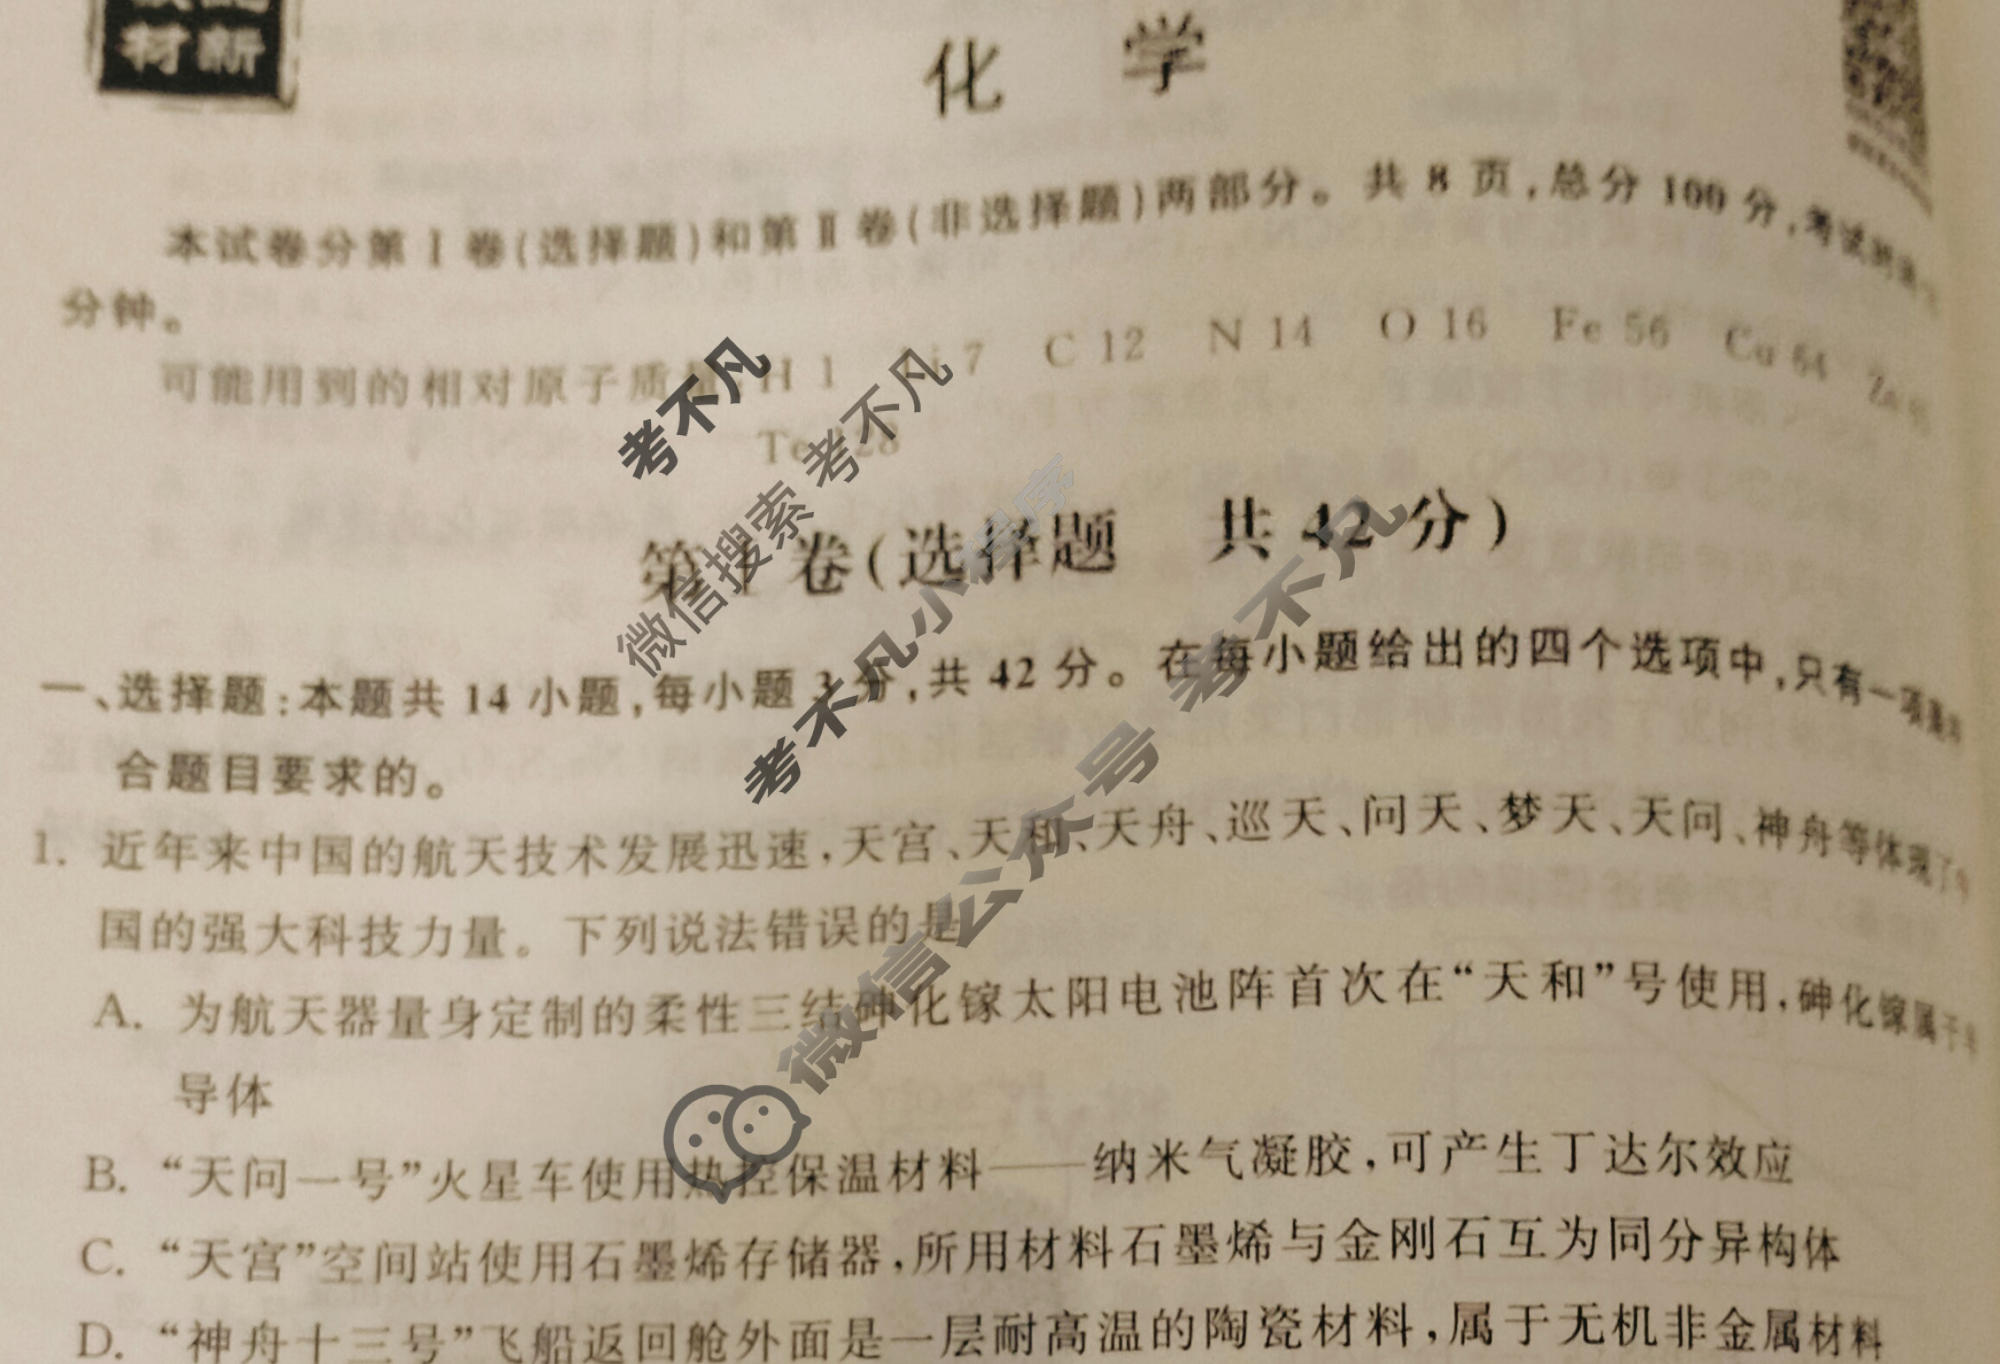 材新
化 学
本试卷分第Ⅰ卷(选择题)和第Ⅱ卷(非选择题)两部分。共 8 页,总分 100 分,考试时
分钟。
可能用到的相对原子质量 H 1 Li 7 C 12 N 14 O 16 Fe 56 Cu 64 Zn
Te 128
第Ⅰ卷(选择题 共 42 分)
一、选择题:本题共 14 小题,每小题 3 分,共 42 分。在每小题给出的四个选项中,只有一项是
合题目要求的。
1. 近年来中国的航天技术发展迅速,天宫、天和、天舟、巡天、问天、梦天、天问、神舟等体现了
国的强大科技力量。下列说法错误的是
A. 为航天器量身定制的柔性三结砷化镓太阳电池阵首次在“天和”号使用,砷化镓属于半
导体
B. “天问一号”火星车使用热控保温材料——纳米气凝胶,可产生丁达尔效应
C. “天宫”空间站使用石墨烯存储器,所用材料石墨烯与金刚石互为同分异构体
D. “神舟十三号”飞船返回舱外面是一层耐高温的陶瓷材料,属于无机非金属材料
考不凡
微信搜索 考不凡
考不凡小程序
微信公众号 考不凡